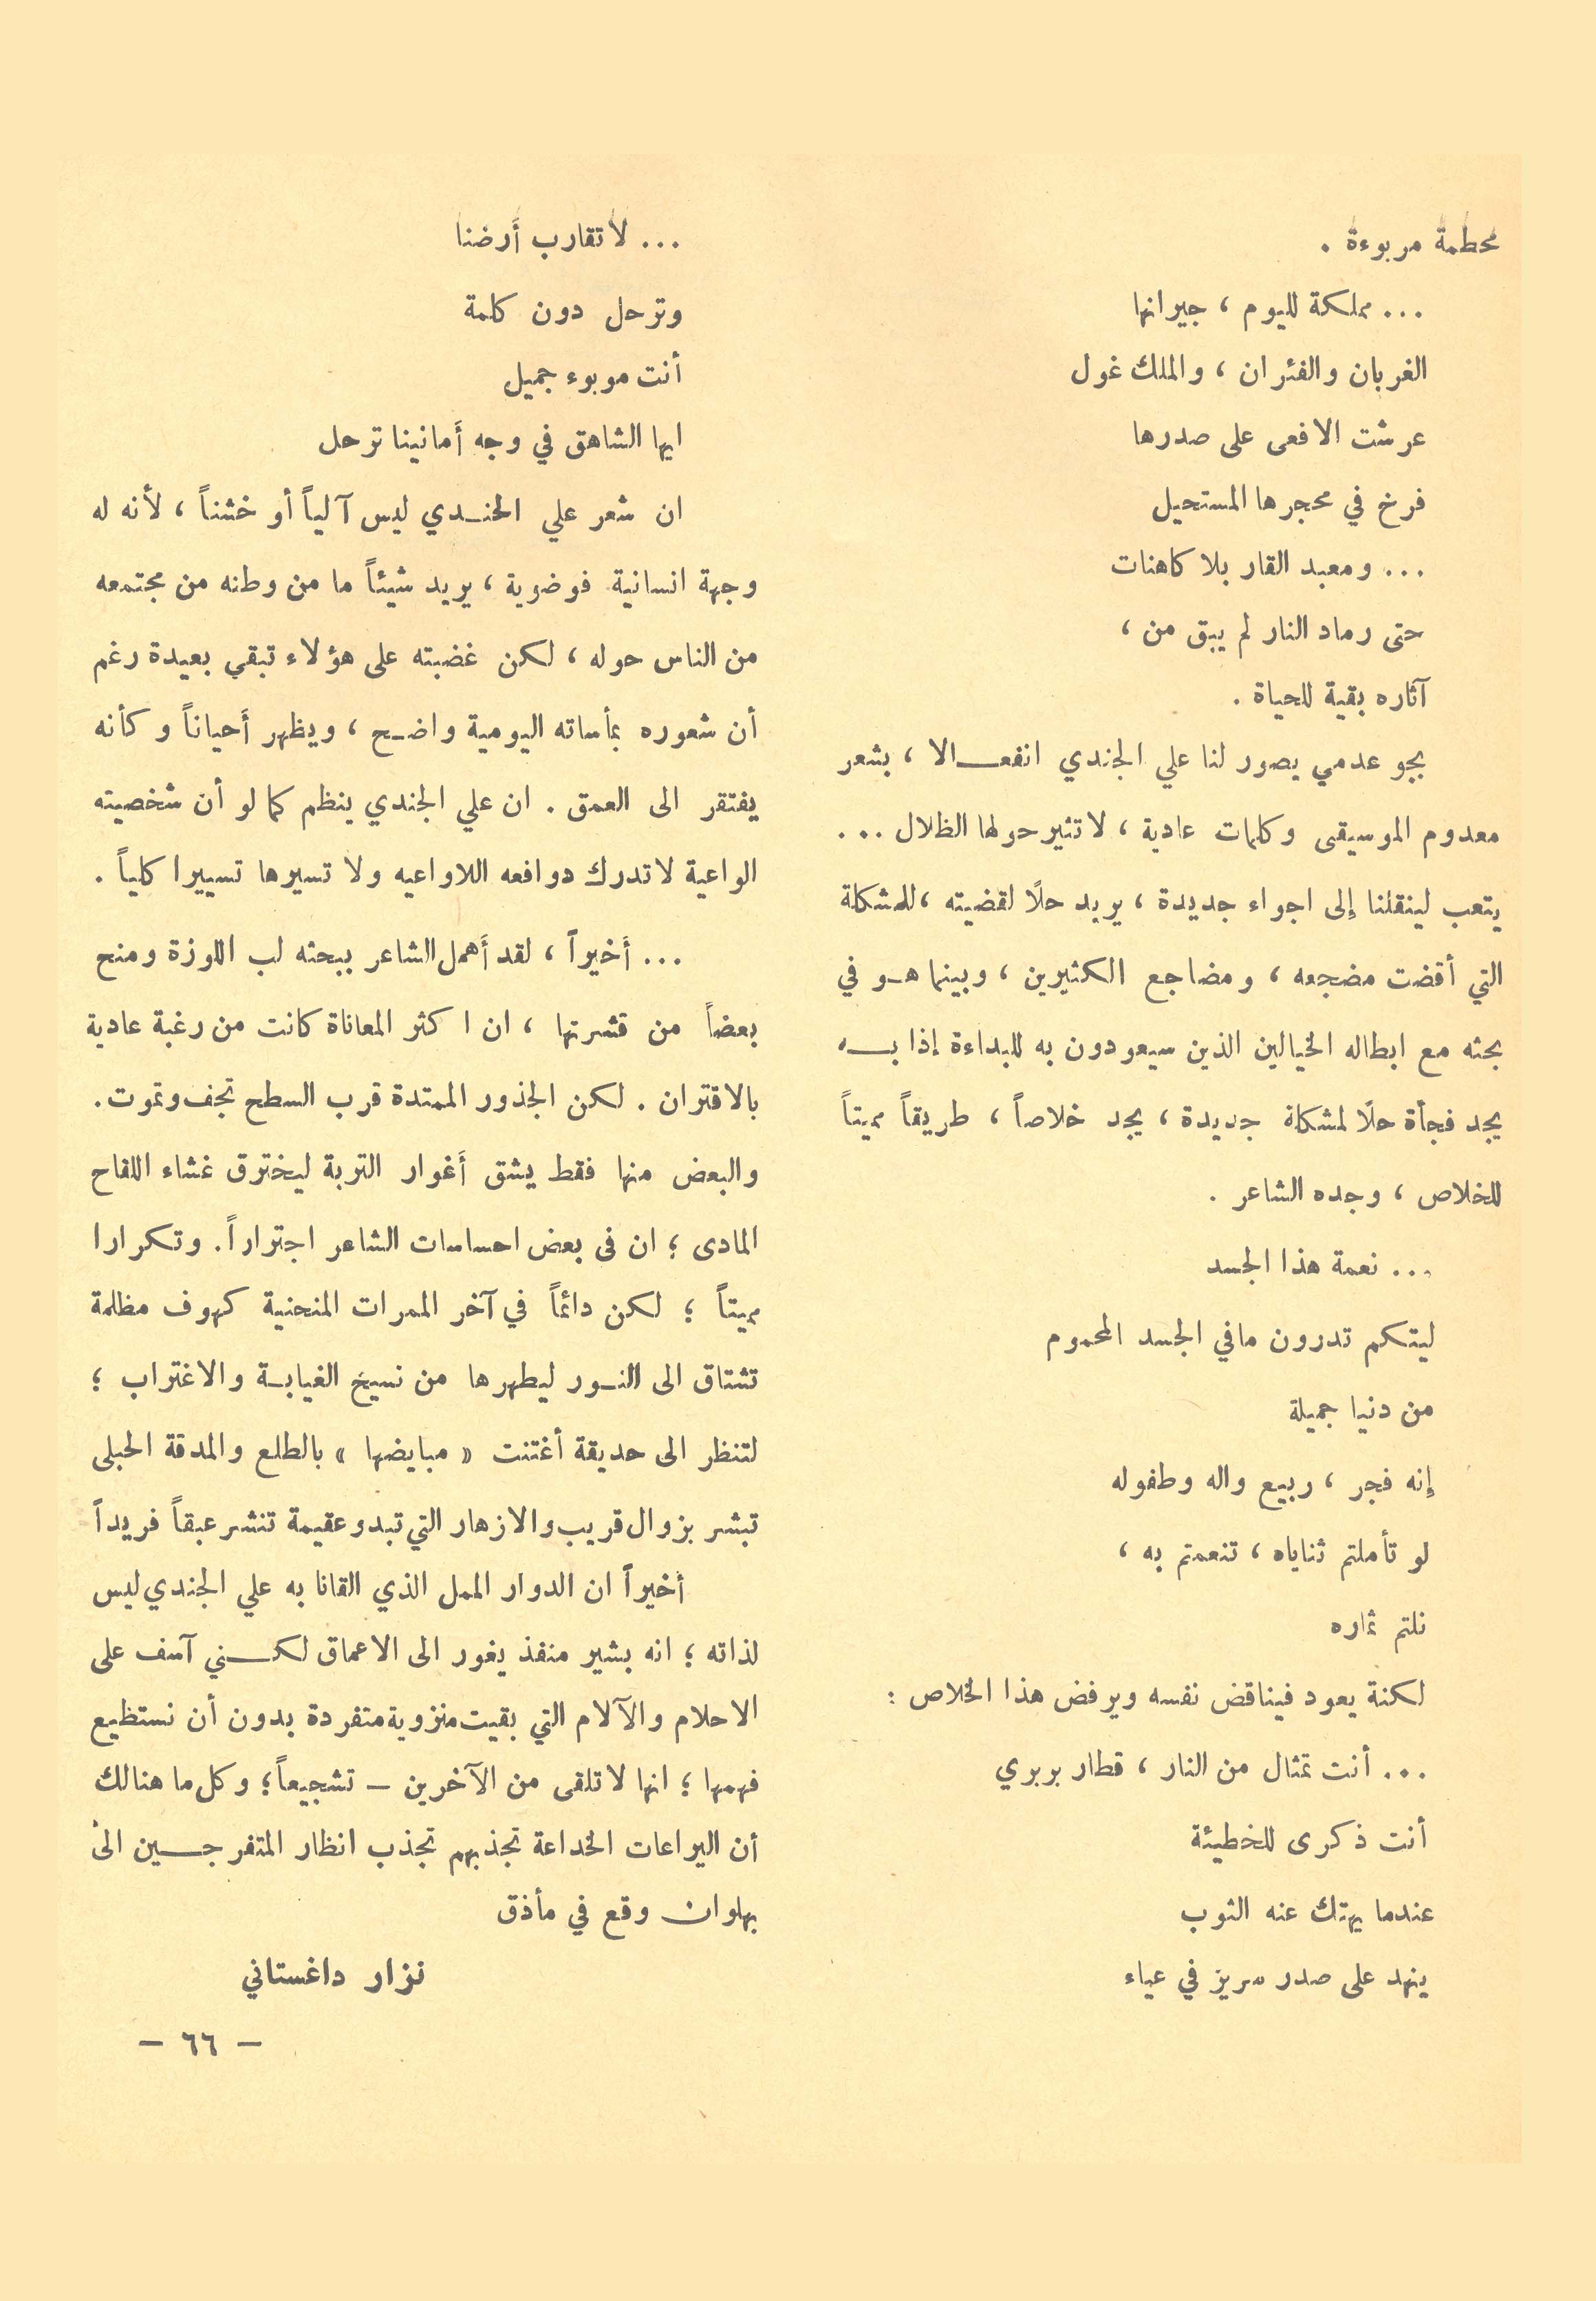 محطمة مربوءة .
... مملكة لليوم ، جيرانها
الغربان والفئران ، والملك غول
عرشت الافعى على صدرها
فرخ في محجرها المستحيل
... ومعبد القار بلا كاهنات
حتى رماد النار لم يبق من ،
آثاره بقية للحياة .
بجو عدمي يصور لنا علي الجندي انفعالا ، بشعر
معدوم الموسيقى وكلمات عادية ، لا تثير حولها الظلال ...
يتعب لينقلنا إلى اجواء جديدة ، يريد حلًا لقضيته ، للمشكلة
التي أقضت مضجعه ، ومضاجع الكثيرين ، وبينما هو في
بحثه مع ابطاله الخيالين الذين سيعودون به للبداءة إذا به
يجد فجأة حلًا لمشكلة جديدة ، يجد خلاصاً ، طريقاً مميتاً
للخلاص ، وجده الشاعر .
... نعمة هذا الجسد
ليتكم تدرون مافي الجسد المحموم
من دنيا جميلة
إنه فجر ، ربيع واله وطفوله
لو تأملتم ثناياه ، تنعمتم به ،
نلتم ثماره
لكنة يعود فيناقض نفسه ويرفض هذا الخلاص :
... أنت تمثال من النار ، قطار بربري
أنت ذكرى للخطيئة
عندما يهتك عنه الثوب
ينهد على صدر سريز في عياء
... لا تقارب أَرضنا
وترحل دون كلمة
أنت موبوء جميل
ايها الشاهق في وجه أَمانينا ترحل
ان شعر علي الجندي ليس آلياً أو خشناً ، لأنه له
وجهة انسانية فوضوية ، يريد شيئاً ما من وطنه من مجتمعه
من الناس حوله ، لكن غضبته على هؤلاء تبقي بعيدة رغم
أن شعوره بمأساته اليومية واضح ، ويظهر أَحياناً وكأنه
يفتقر الى العمق . ان علي الجندي ينظم كما لو أن شخصيته
الواعية لا تدرك دوافعه اللاواعيه ولا تسيرها تسييرا كلياً .
... أَخيراً ، لقد أَهمل الشاعر ببحثه لب اللوزة ومنح
بعضاً من قشرتها ، ان اكثر المعاناة كانت من رغبة عادية
بالاقتران . لكن الجذور الممتدة قرب السطح تجف وتموت .
والبعض منها فقط يشق أَغوار التربة ليخترق غشاء اللقاح
المادى ؛ ان فى بعض احساسات الشاعر اجتراراً . وتكرارا
مميتاً ؛ لكن دائماً في آخر الممرات المنحنية كهوف مظلمة
تشتاق الى النور ليطهرها من نسيخ الغيابة والاغتراب ؛
لتنظر الى حديقة أغتنت « مبايضها » بالطلع والمدقة الحبلى
تبشر بزوال قريب والازهار التي تبدو عقيمة تنشر عبقاً فريداً
أخيراً ان الدوار الممل الذي القانا به علي الجندي ليس
لذاته ؛ انه بشير منفذ يغور الى الاعماق لكني آسف على
الاحلام والآلام التي بقيت منزوية متفردة بدون أن نستظيع
فهمها ؛ انها لا تلقى من الآخرين — تشجيعاً ؛ وكل ما هنالك
أن اليراعات الخداعة تجذبهم تجذب انظار المتفرجين الى
بهلوان وقع في مأذق
نزار داغستاني
— ٦٦ —